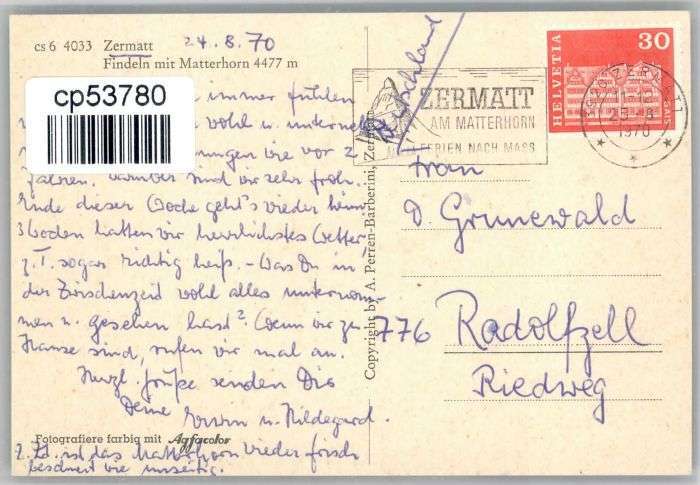 cs 6 4033 Zermatt 24.8.70
Findeln mit Matterhorn 4477 m
cp53780
immer fühlen
wohl u. unterneh
ungen wie vor 2
Jahren, darüber sind wir sehr froh.
Ende dieser Woche geht's wieder heim
3 Wochen hatten wir herrlichstes Wetter,
z.T. sogar richtig heiß. - Was Du in
der Zwischenzeit wohl alles unternom-
men u. gesehen hast? Wenn wir zu
Hause sind, rufen wir mal an.
Herzl. Grüße senden Dir
Deine Erwin u. Hildegard.
Fotografiere farbig mit Agfacolor
z. Zt. ist das Matterhorn wieder frisch
beschneit wie
Copyright by A. Perren-Barberini, Zermatt
Deutschland
ZERMATT
AM MATTERHORN
FERIEN NACH MASS
HELVETIA 30
ZERMATT
1970
Frau
D. Grunewald
776 Radolfzell
Riedweg